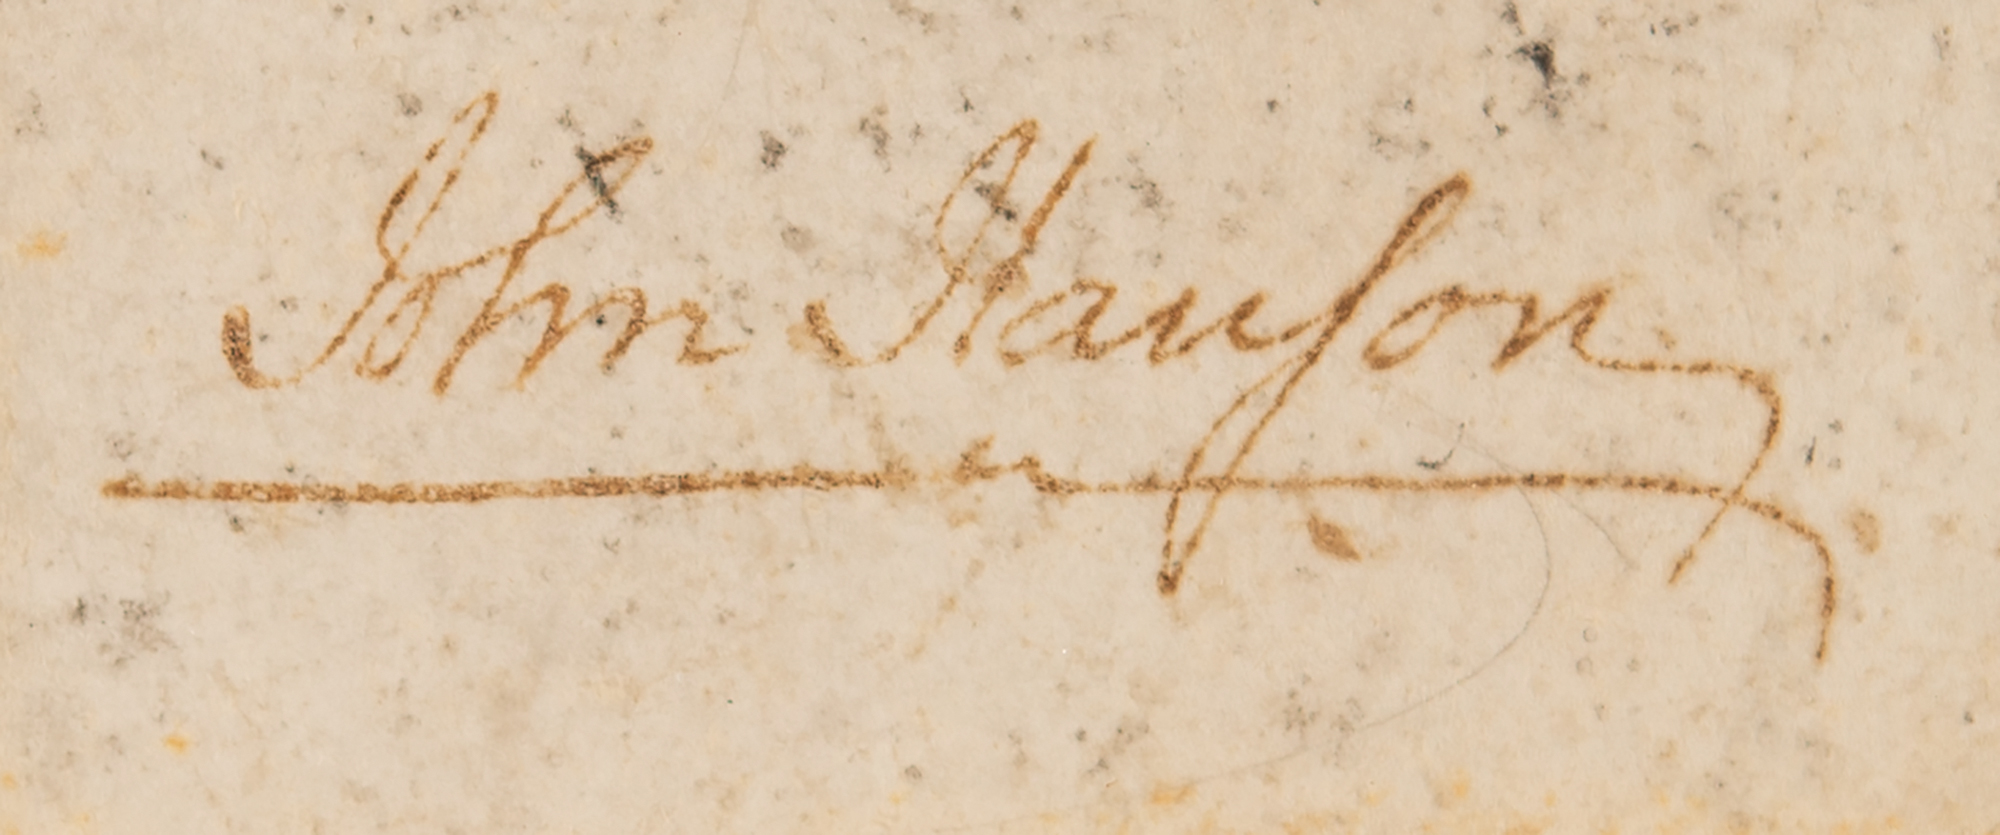 John Hanſon